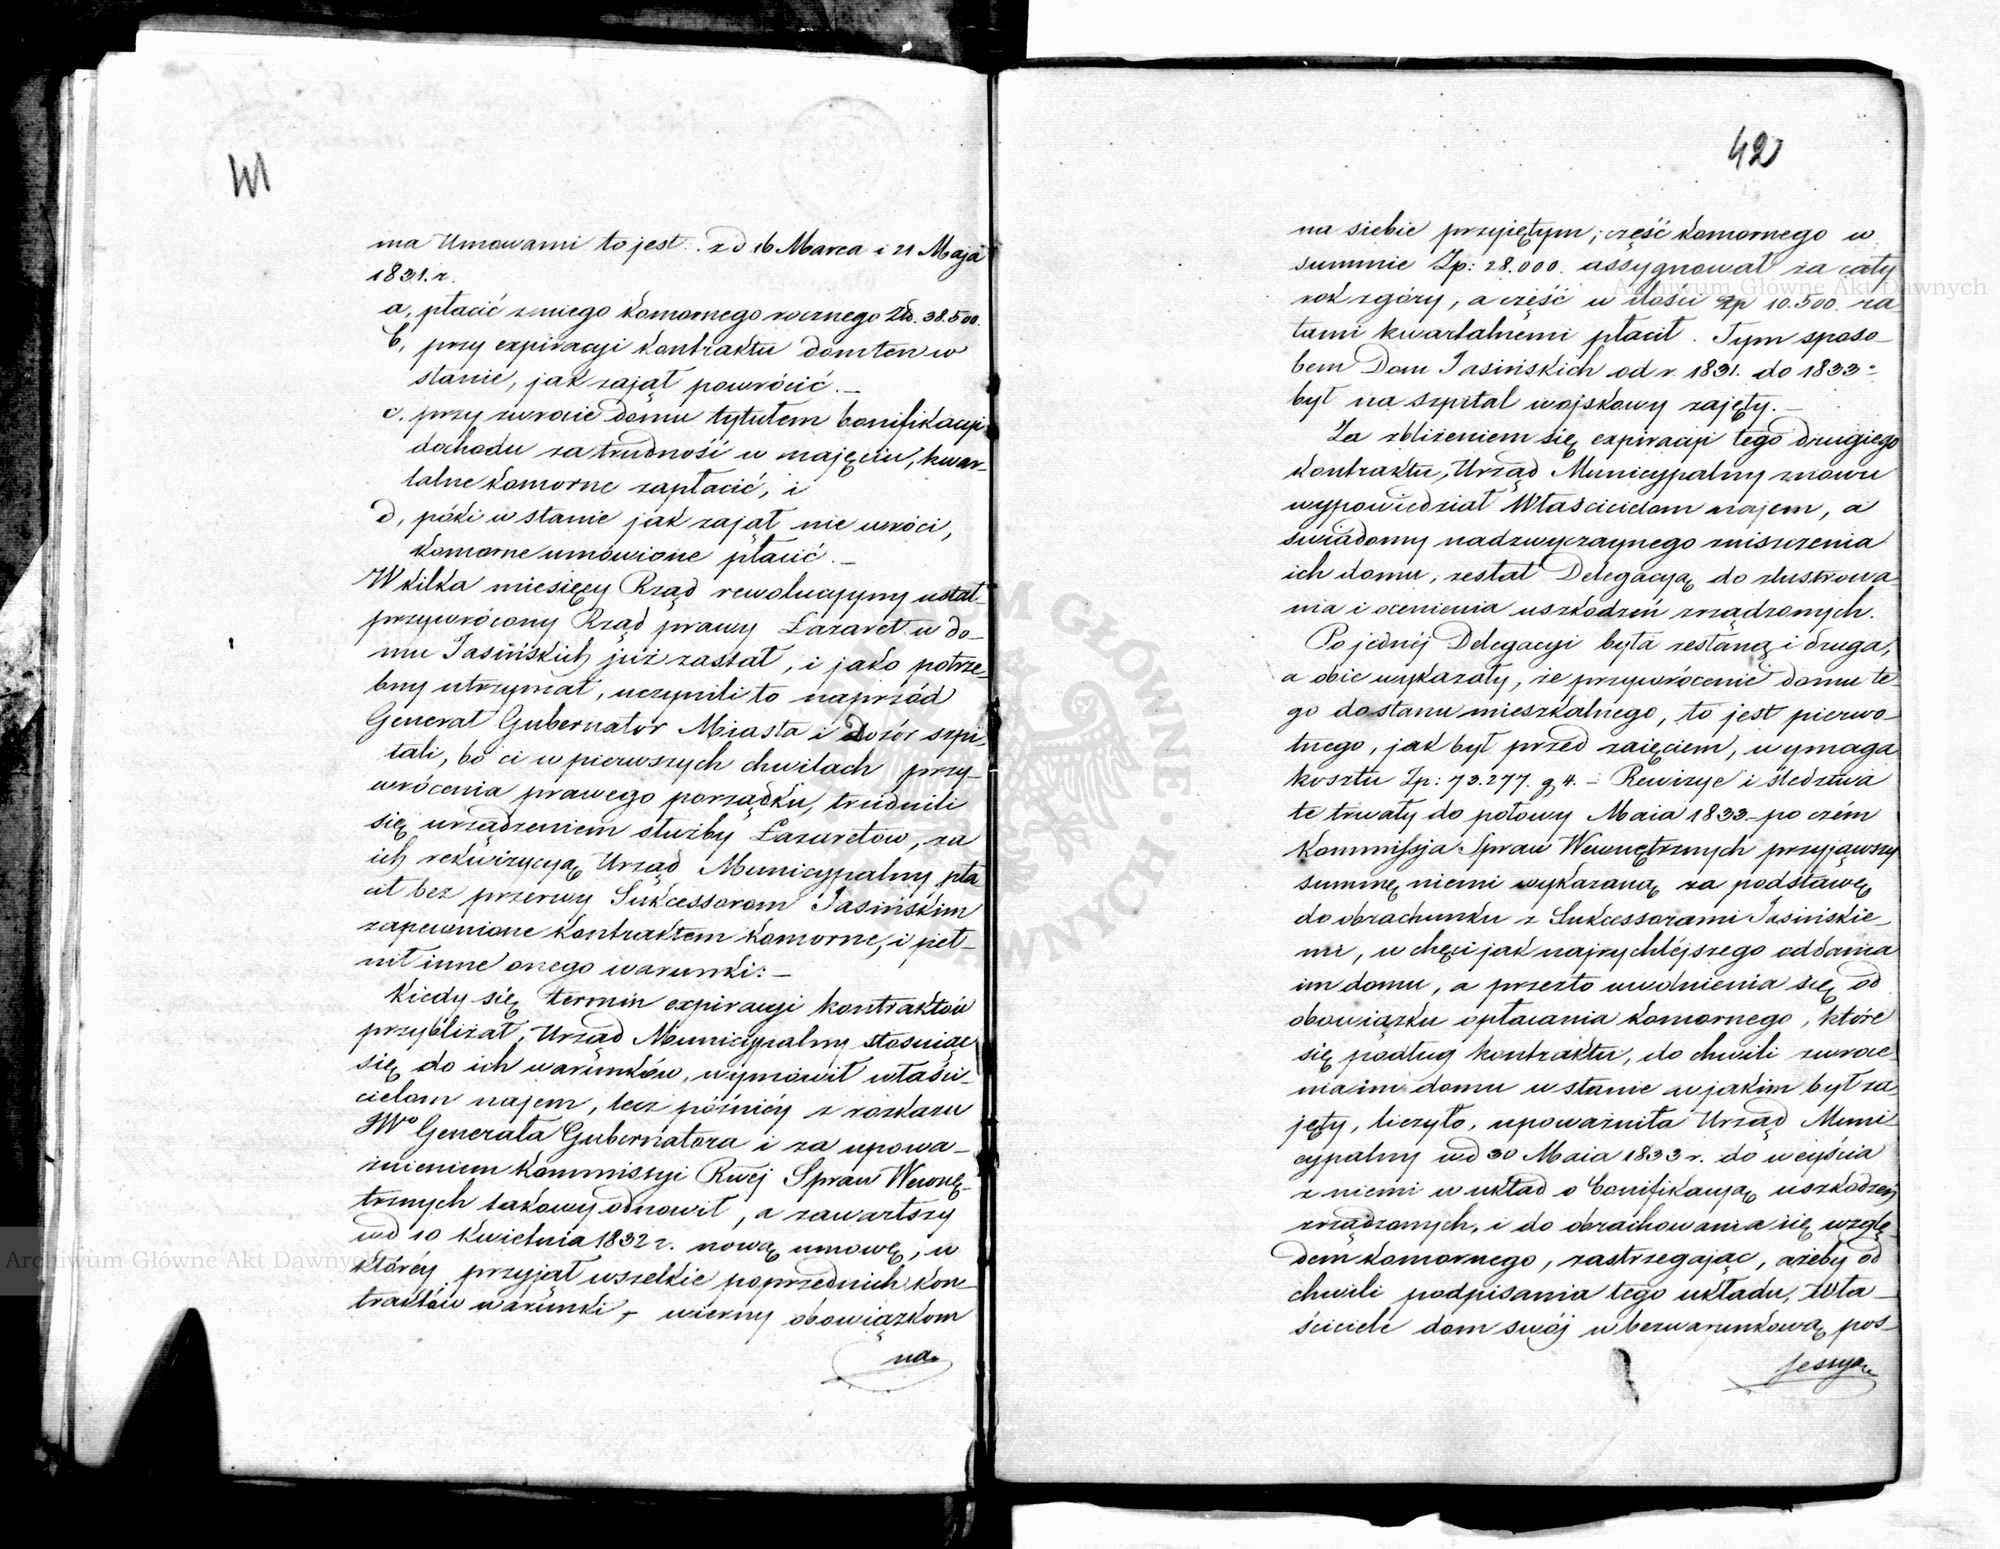 41
ma Umowami to jest: z d 16 Marca i 21 Maja
1831. r.
a, płacić z niego komornego rocznego Zło. 38.500.
b, przy expiracyi kontraktu dom ten w
stanie, jak zajął powrócić. —
c. przy zwrocie domu tytułem bonifikacyi
dochodu za trudność w najęciu, kwar-
talne komorne zapłacić, i
d, póki w stanie jak zajął nie wróci,
komorne umówione płacić. —
W kilka miesięcy Rząd rewolucyjny ustał
przywrócony Rząd prawy Lazaret w do-
mu Jasińskich już zastał, i jako potrze-
bny utrzymał, uczynili to naprzód
Generał Gubernator Miasta i Dozór szpi-
tali, bo ci w pierwszych chwilach przy-
wrócenia prawego porządku, trudnili
się urządzeniem służby Lazaretów, za
ich rekwizycyą Urząd Municypalny pła-
cił bez przerwy Sukcessorom Jasińskim
zapewnione kontraktem komorne, i peł-
nił inne onego warunki: —
Kiedy się termin expiracyi kontraktów
przybliżał, Urząd Municypalny stosując
się do ich warunków, wymówił właści-
cielom najem, lecz później z rozkazu
JWo Generała Gubernatora i za upowa-
żnieniem Kommissyi Rwéj Spraw Wewnę-
trznych takowy odnowił, a zawarłszy
w d 10 Kwietnia 1832 r. nową umowę, w
której przyjął wszelkie poprzednich kon-
traktów warunki, — wierny obowiązkom
na
42
na siebie przyiętym; część komornego w
summie Zp: 28.000. assygnował za cały
rok zgóry, a część w ilości zp 10.500. ra-
tami kwartalnemi płacił. Tym sposo-
bem Dom Jasińskich od r. 1831. do 1833
był na szpital wojskowy zajęty. —
Za zbliżeniem się expiracyi tego drugiego
kontraktu, Urząd Municypalny znowu
wypowiedział Właścicielom najem, a
świadomy nadzwyczaynego zniszczenia
ich domu, zesłał Delegacyą do zlustrowa-
nia i ocenienia uszkodzeń zrządzonych.
Po jednéj Delegacyi była zesłaną i druga,
a obie wykazały, że przywrócenie domu te-
go do stanu mieszkalnego, to jest pierwo-
tnego, jak był przed zaięciem, wymaga
kosztu Zp: 73.277. g 4. — Rewizye i śledztwa
te trwały do połowy Maia 1833 — po czém
Kommissja Spraw Wewnętrznych przyjąwszy
summę niemi wykazaną za podstawę
do obrachunku z Sukcessorami Jasińskie-
mi, w chęci jak najrychlejszego oddania
im domu, a przezto uwolnienia się od
obowiązku opłacania komornego, które
się podług kontraktu, do chwili zwróce-
nia im domu w stanie w jakim był za-
jęty, liczyło, upoważniła Urząd Muni-
cypalny w d 30 Maia 1833 r. do weyścia
z niemi w układ o bonifikacyą uszkodzeń
zrządzonych, i do obrachowania się wzglę-
dem komornego, zastrzegając, ażeby od
chwili podpisania tego układu, Wła-
ściciele dom swój w bezwarunkową pos-
sessyą
Archiwum Główne Akt Dawnych
Archiwum Główne Akt Dawnych